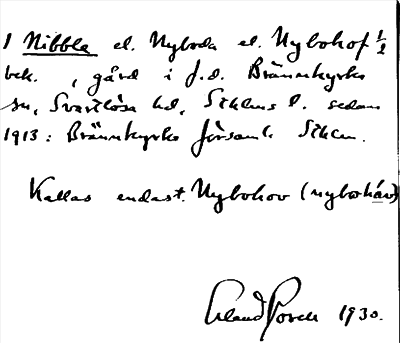 1 Nibble el. Nyboda el. Nybohof ½
bek. , gård i f.d. Brännkyrka
sn, Svartlösa hd, Sthlms l. sedan
1913: Brännkyrka församl. Sthlm.
Kallas endast. Nybohov (nybohåv)
Erland 1930.